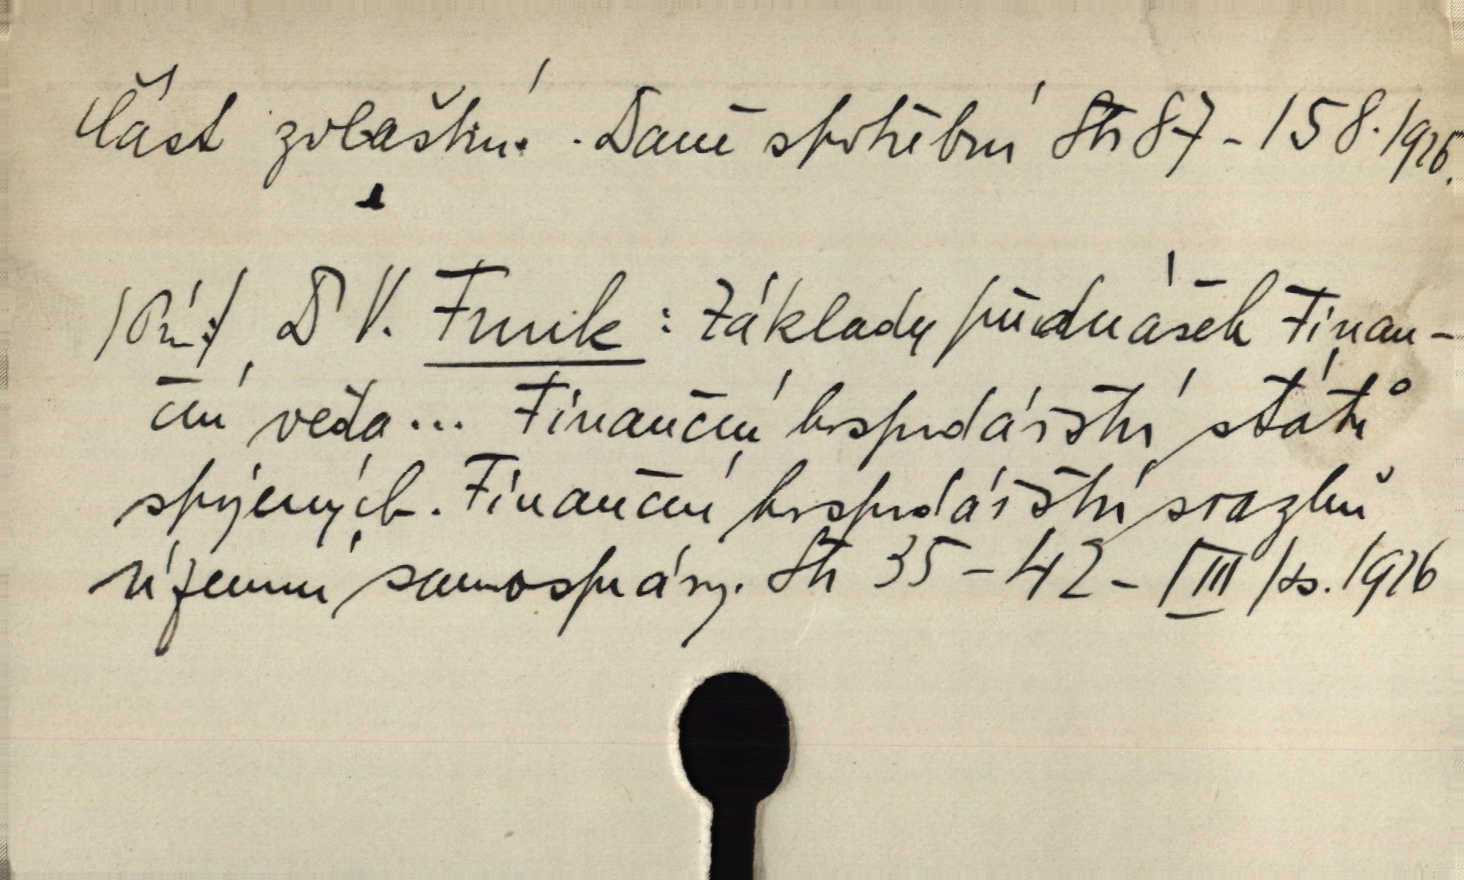 Část zvláštní. Daně spotřební Str 87 - 158. 1926.
/Prá:/ Dr V. Funk: Základy přednášek Finan-
ční věda... Finanční hospodářství států
spojených. Finanční hospodářství svazků
územní samosprávy. Str 35 - 42 - III /ks. 1926